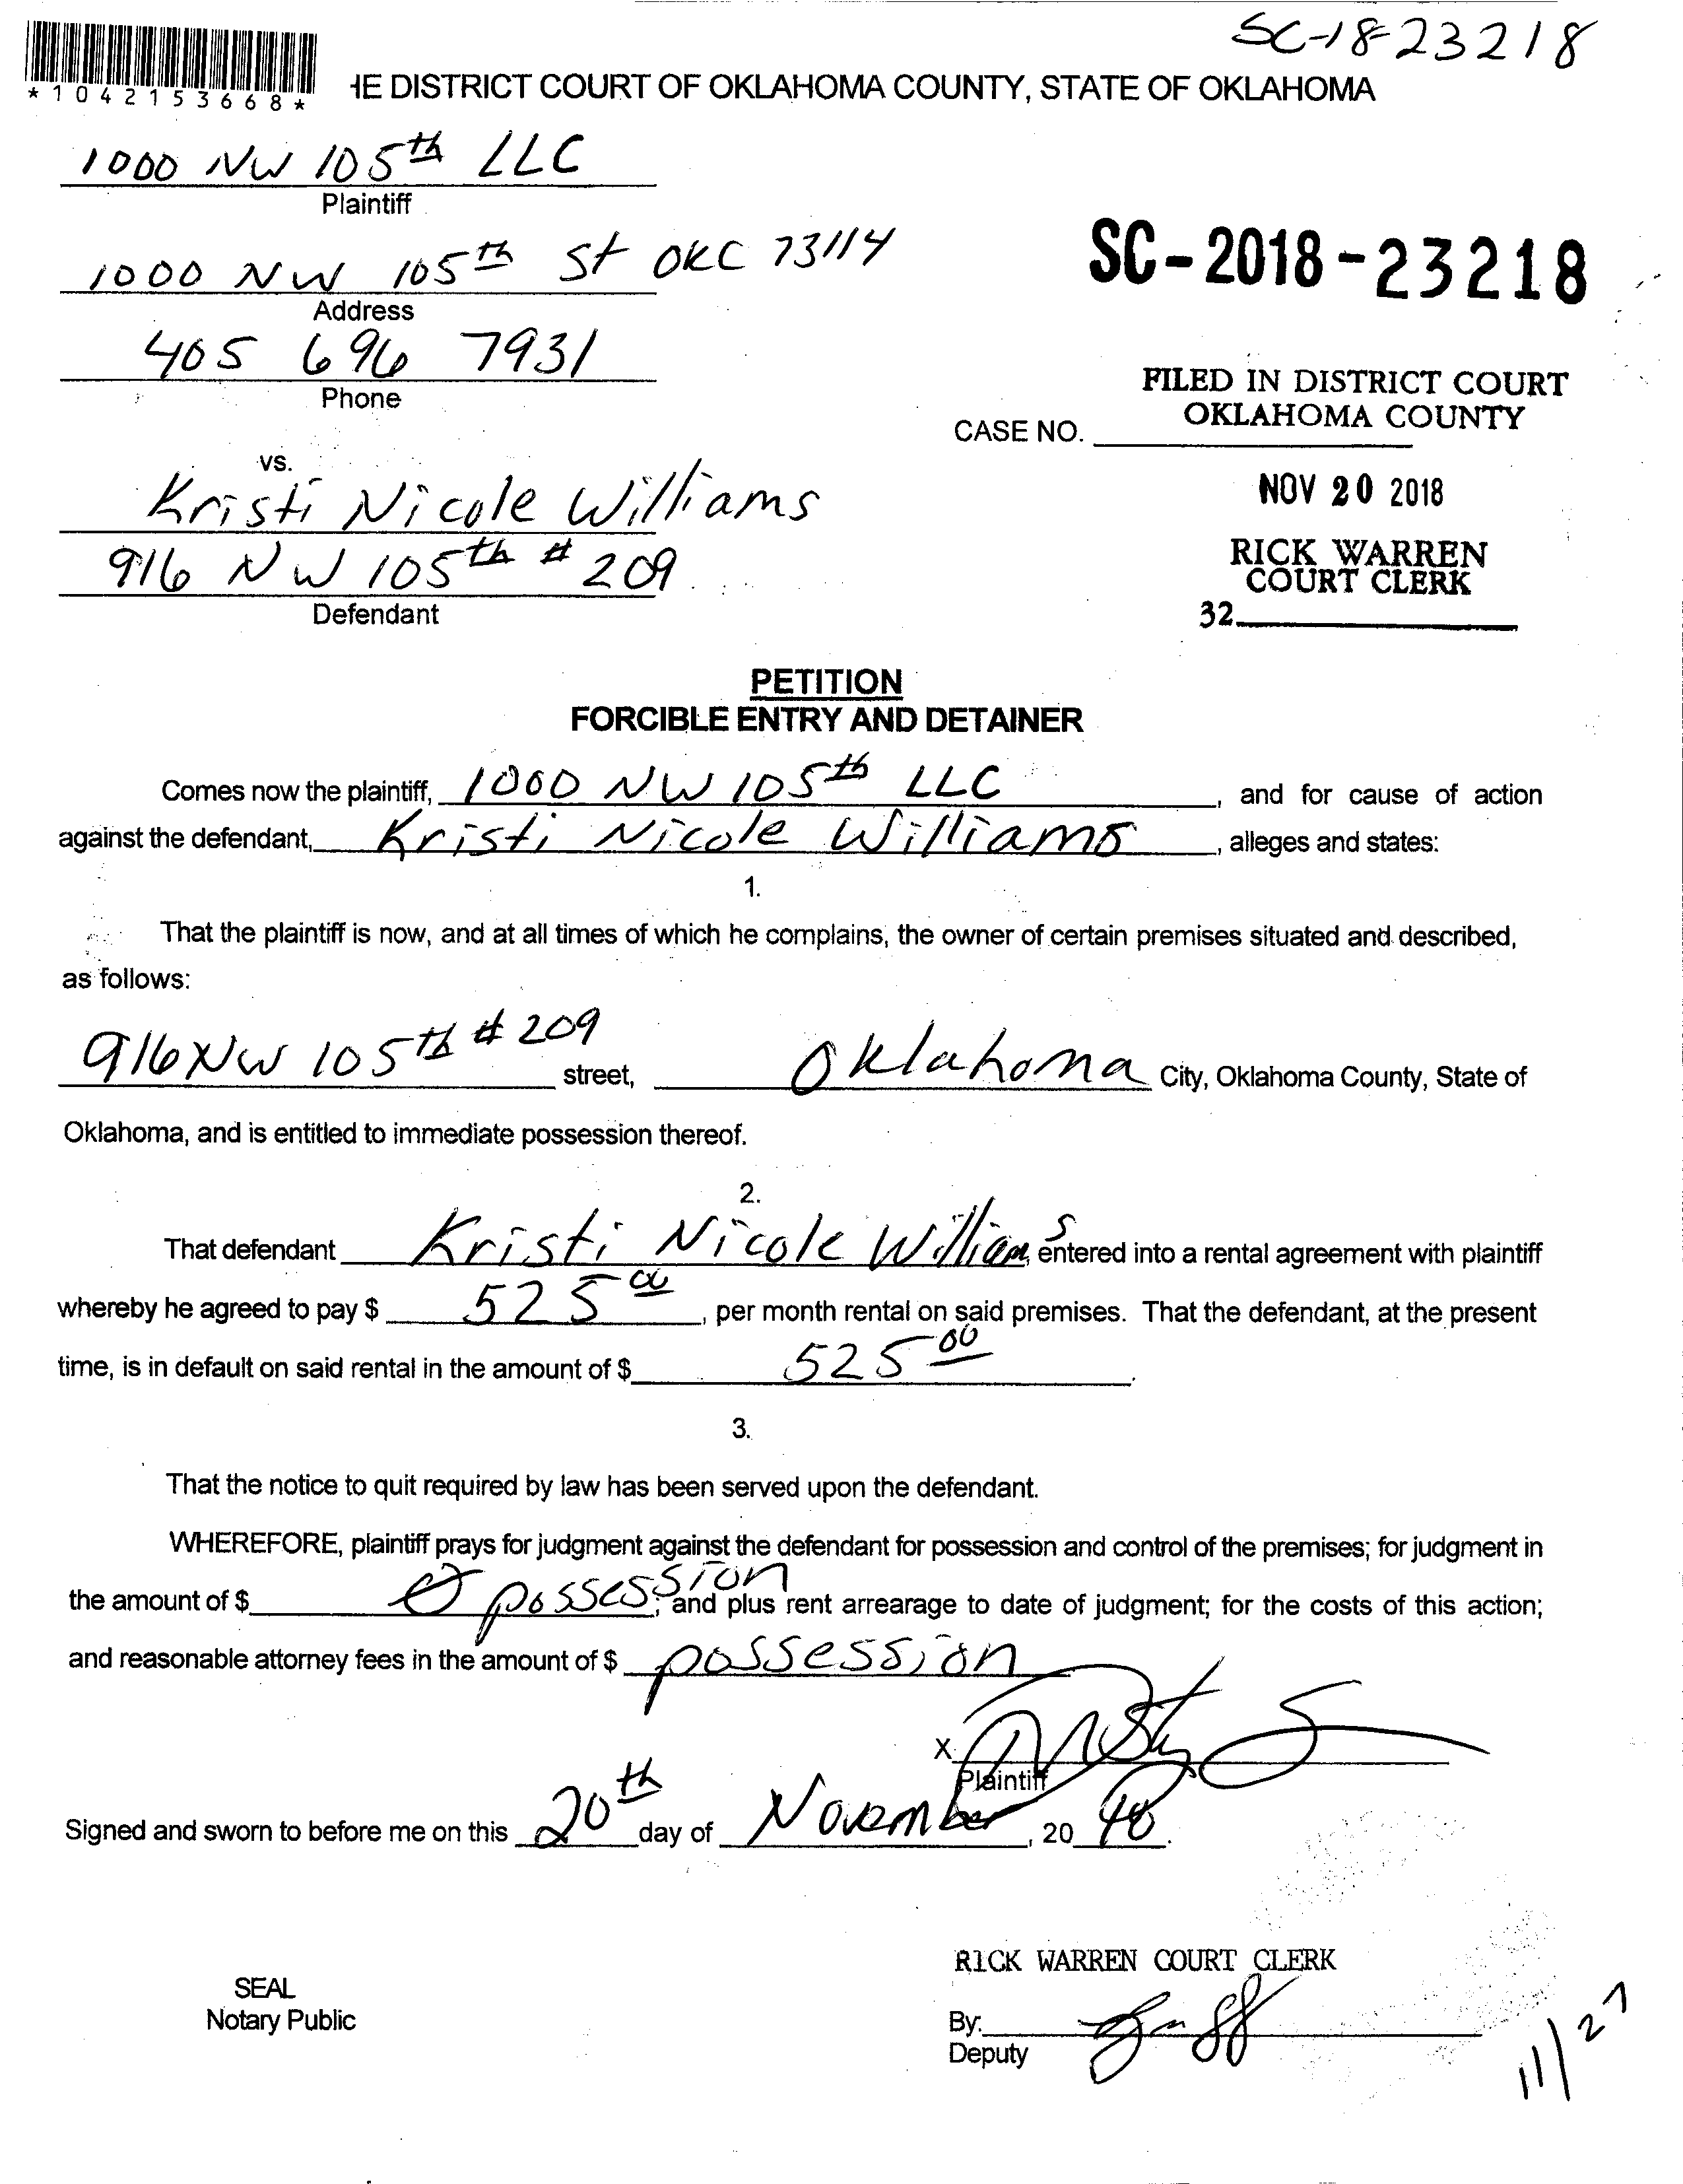 SC-18-23218
*1042153668*
HE DISTRICT COURT OF OKLAHOMA COUNTY, STATE OF OKLAHOMA
1000 NW 105th LLC
Plaintiff
1000 NW 105th St OKC 73114
Address
SC-2018-23218
405 696 7931
Phone
FILED IN DISTRICT COURT
OKLAHOMA COUNTY
CASE NO.
vs.
NOV 20 2018
Kristi Nicole Williams
916 NW 105th # 209
Defendant
RICK WARREN
COURT CLERK
32
PETITION
FORCIBLE ENTRY AND DETAINER
Comes now the plaintiff, 1000 NW 105th LLC, and for cause of action
against the defendant, Kristi Nicole Williams, alleges and states:
1.
That the plaintiff is now, and at all times of which he complains, the owner of certain premises situated and described,
as follows:
916 NW 105th # 209 street, Oklahoma City, Oklahoma County, State of
Oklahoma, and is entitled to immediate possession thereof.
2.
That defendant Kristi Nicole Williams entered into a rental agreement with plaintiff
whereby he agreed to pay $ 525 00, per month rental on said premises. That the defendant, at the present
time, is in default on said rental in the amount of $ 525 00.
3.
That the notice to quit required by law has been served upon the defendant.
WHEREFORE, plaintiff prays for judgment against the defendant for possession and control of the premises; for judgment in
the amount of $ possession; and plus rent arrearage to date of judgment; for the costs of this action;
and reasonable attorney fees in the amount of $ possession
X
Plaintiff
Signed and sworn to before me on this 20th day of November, 20
RICK WARREN COURT CLERK
SEAL
Notary Public
By:
Deputy
11/27